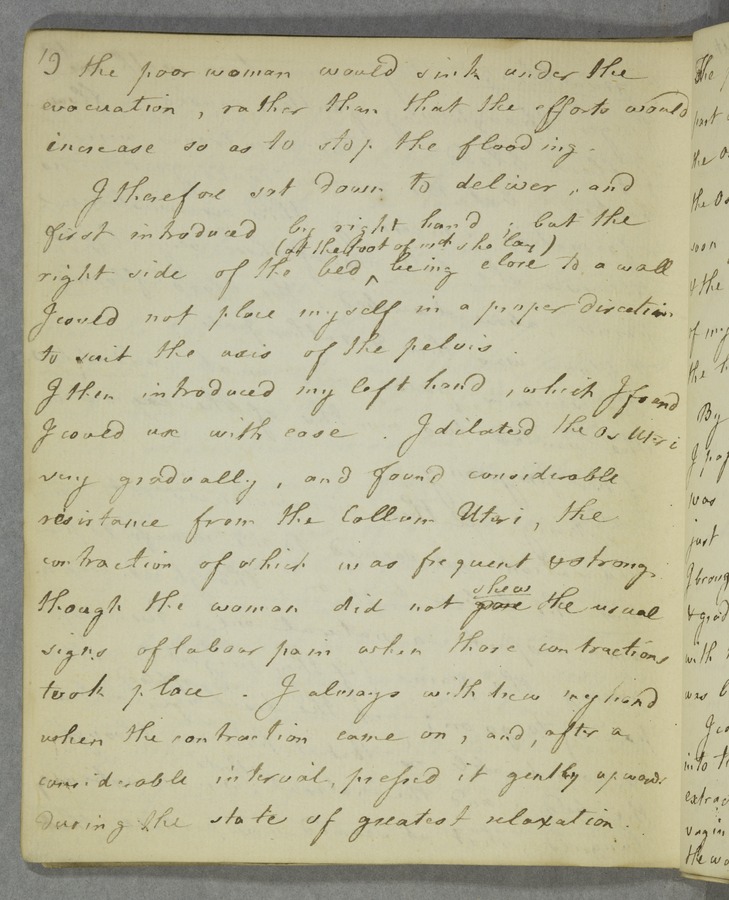 19 the poor woman would sink under the
evacuation, rather than that the efforts would
increase so as to stop the flooding.
I therefore sat down to deliver, and
first introduced by right hand; but the
(at the foot of wch she lay)
right side of the bed ^ being close to a wall
I could not place myself in a proper direction
to suit the axis of the pelvis.
I then introduced my left hand, which I found
I could use with ease. I dilated the Os Uteri
very gradually, and found considerable
resistance from the Collum Uteri, the
contraction of which was frequent & strong,
shew
though the woman did not gave the usual
signs of labour pain when those contractions
took place. I always withdrew my hand
when the contraction came on, and, after a
considerable interval, pressed it gently upwards
during the state of greatest relaxation.
The
part
the O
the Os
soon
& the
of my
the h
By
I
was
just
I broug
& grad
with
was b
I co
into t
extrac
vagin
the wo